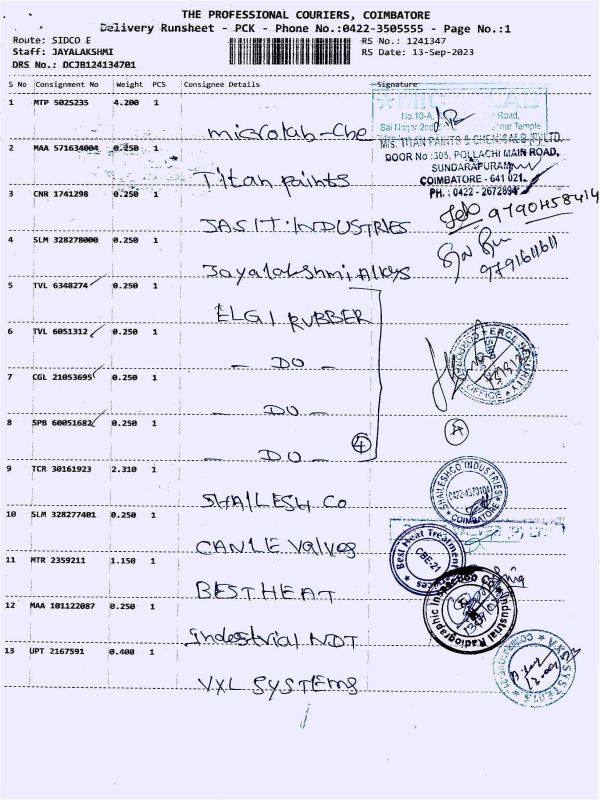 THE PROFESSIONAL COURIERS, COIMBATORE
Delivery Runsheet - PCK - Phone No.:0422-3505555 - Page No.:1
Route: SIDCO E
RS No.: 1241347
Staff: JAYALAKSHMI
RS Date: 13-Sep-2023
DRS No.: DCJB124134701
S No Consignment No Weight PCS Consignee Details Signature
1 MTP 5025235 4.200 1
No.10-A, Road,
Sai Nagar 2nd Temple
microlab-Che
M/s. TITAN PAINTS & CHEMICALS (P) LTD.
2 MAA 571634004 0.250 1
DOOR No :305, POLLACHI MAIN ROAD,
SUNDARAPURAM
Titan paints
COIMBATORE - 641 021.
3 CNR 1741298 0.250 1
PH. : 0422 - 2672894
JASIT INDUSTRIES
9790458414
4 SLM 328278000 0.250 1
Jayalakshmi Alloys
9791611611
5 TVL 6348274 0.250 1
ELGI RUBBER
6 TVL 6051312 0.250 1
- DO -
SECURITY
OFFICE
7 CGL 21053695 0.250 1
- DO -
8 SPB 60051682 0.250 1
4
4
- DO -
9 TCR 30161923 2.310 1
SHAILESHCO INDUSTRIES
COIMBATORE
SHAILESH Co
10 SLM 328277401 0.250 1
CANLE Valves
Best Heat Treatment Services
CBE-21
11 MTR 2359211 1.150 1
BEST HEAT
Industrial Radiographic Inspection Co
12 MAA 101122087 0.250 1
Industrial NDT
13 UPT 2167591 0.400 1
VXL SYSTEMS
COIMBATORE
VXL SYSTEMS